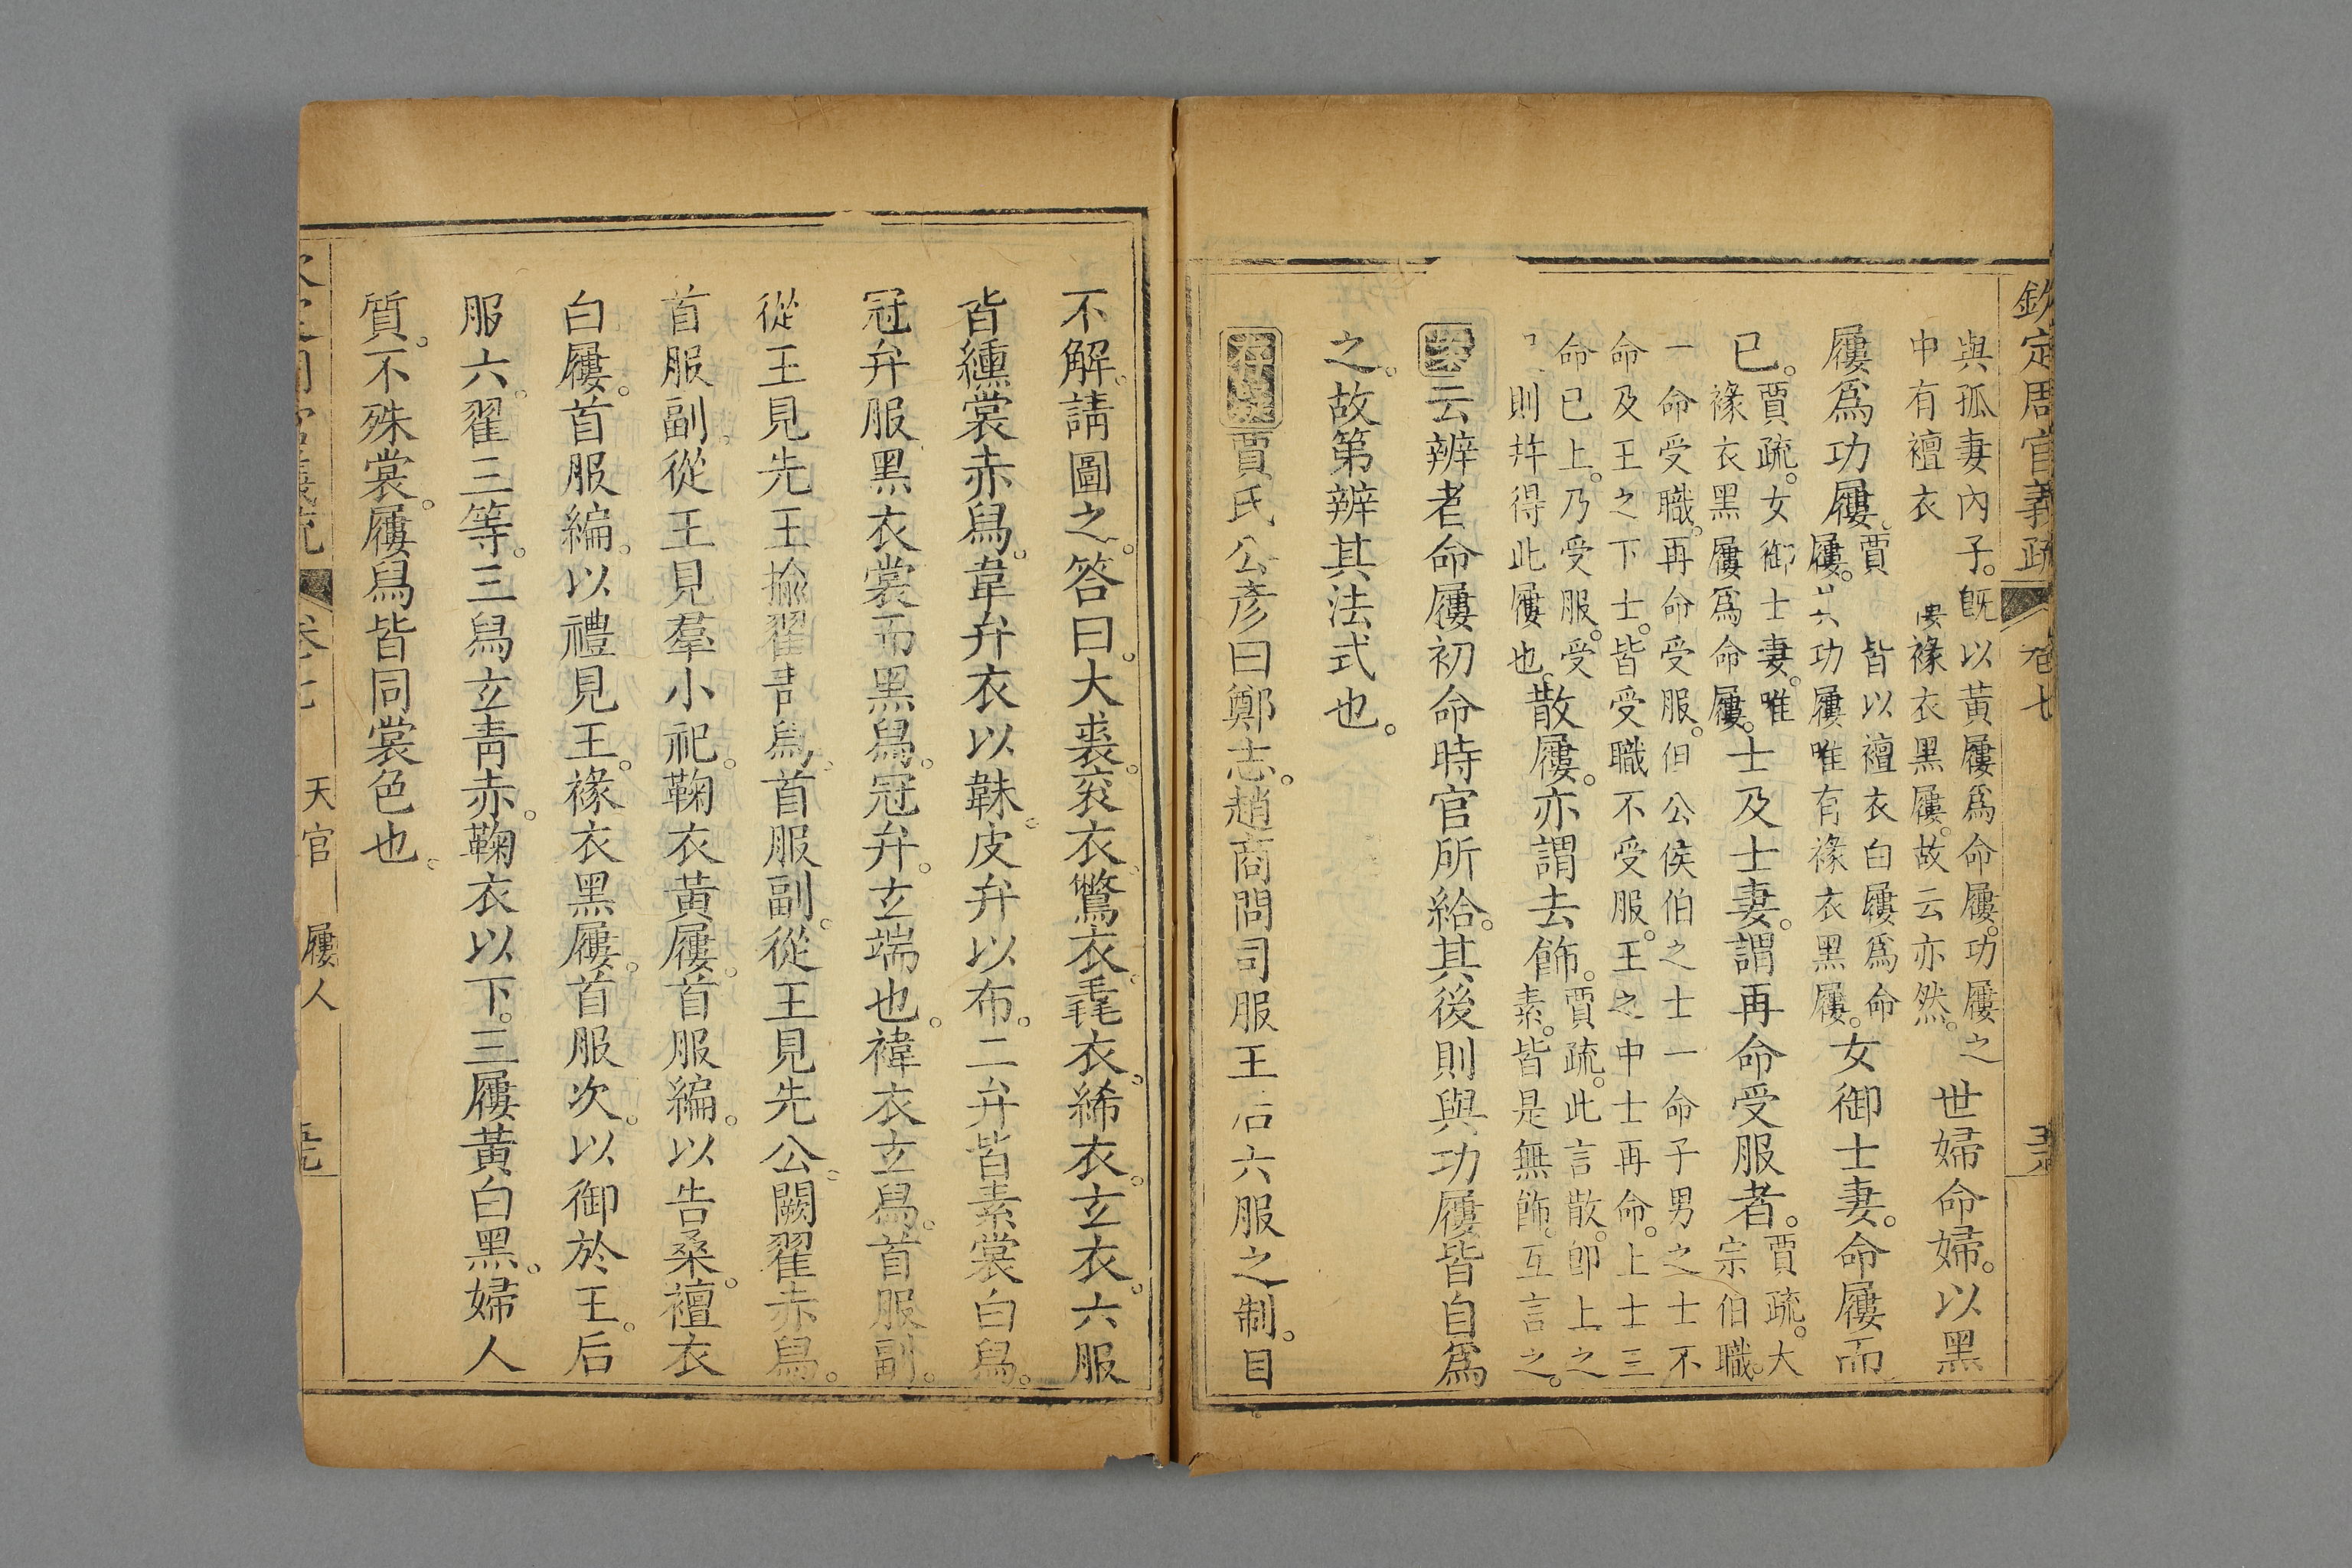 欽定周官義疏 卷七
與孤妻內子。既以黃屨爲命屨。功屨之
中有襢衣 褖衣黑屨。故云亦然。
世婦命婦。以黑
屨爲功屨。
賈 皆以襢衣白屨爲命
屨。其功屨唯有褖衣黑屨。
女御士妻。命屨而
已。
賈疏。女御士妻。唯
褖衣黑屨爲命屨。
士及士妻。謂再命受服者。
賈疏。大
宗伯職。
一命受職。再命受服。但公侯伯之士一命子男之士不
命及王之下士。皆受職不受服。王之中士再命。上士三
命已上。乃受服。受
則幷得此屨也。
散屨。亦謂去飾。
賈疏。此言散。卽上之
素。皆是無飾。互言之。
案云辨者命屨初命時官所給。其後則與功屨皆自爲
之。故第辨其法式也。
賈氏公彥曰鄭志。趙商問司服王后六服之制。目
不解。請圖之。答曰。大裘。袞衣。鷩衣。毳衣。絺衣。玄衣。六服
皆纁裳赤舄。韋弁衣以韎。皮弁以布。二弁皆素裳白舄。
冠弁服黑衣裳而黑舄。冠弁。玄端也。褘衣玄舄。首服副。
從王見先王揄翟青舄。首服副。從王見先公。闕翟赤舄。
首服副。從王見羣小祀。鞠衣黃屨。首服編。以告桑。襢衣
白屨。首服編。以禮見王。褖衣黑屨。首服次。以御於王。后
服六。翟三等。三舄玄靑赤。鞠衣以下。三屨黃白黑。婦人
質。不殊裳。屨舄皆同裳色也。
天官 屨人